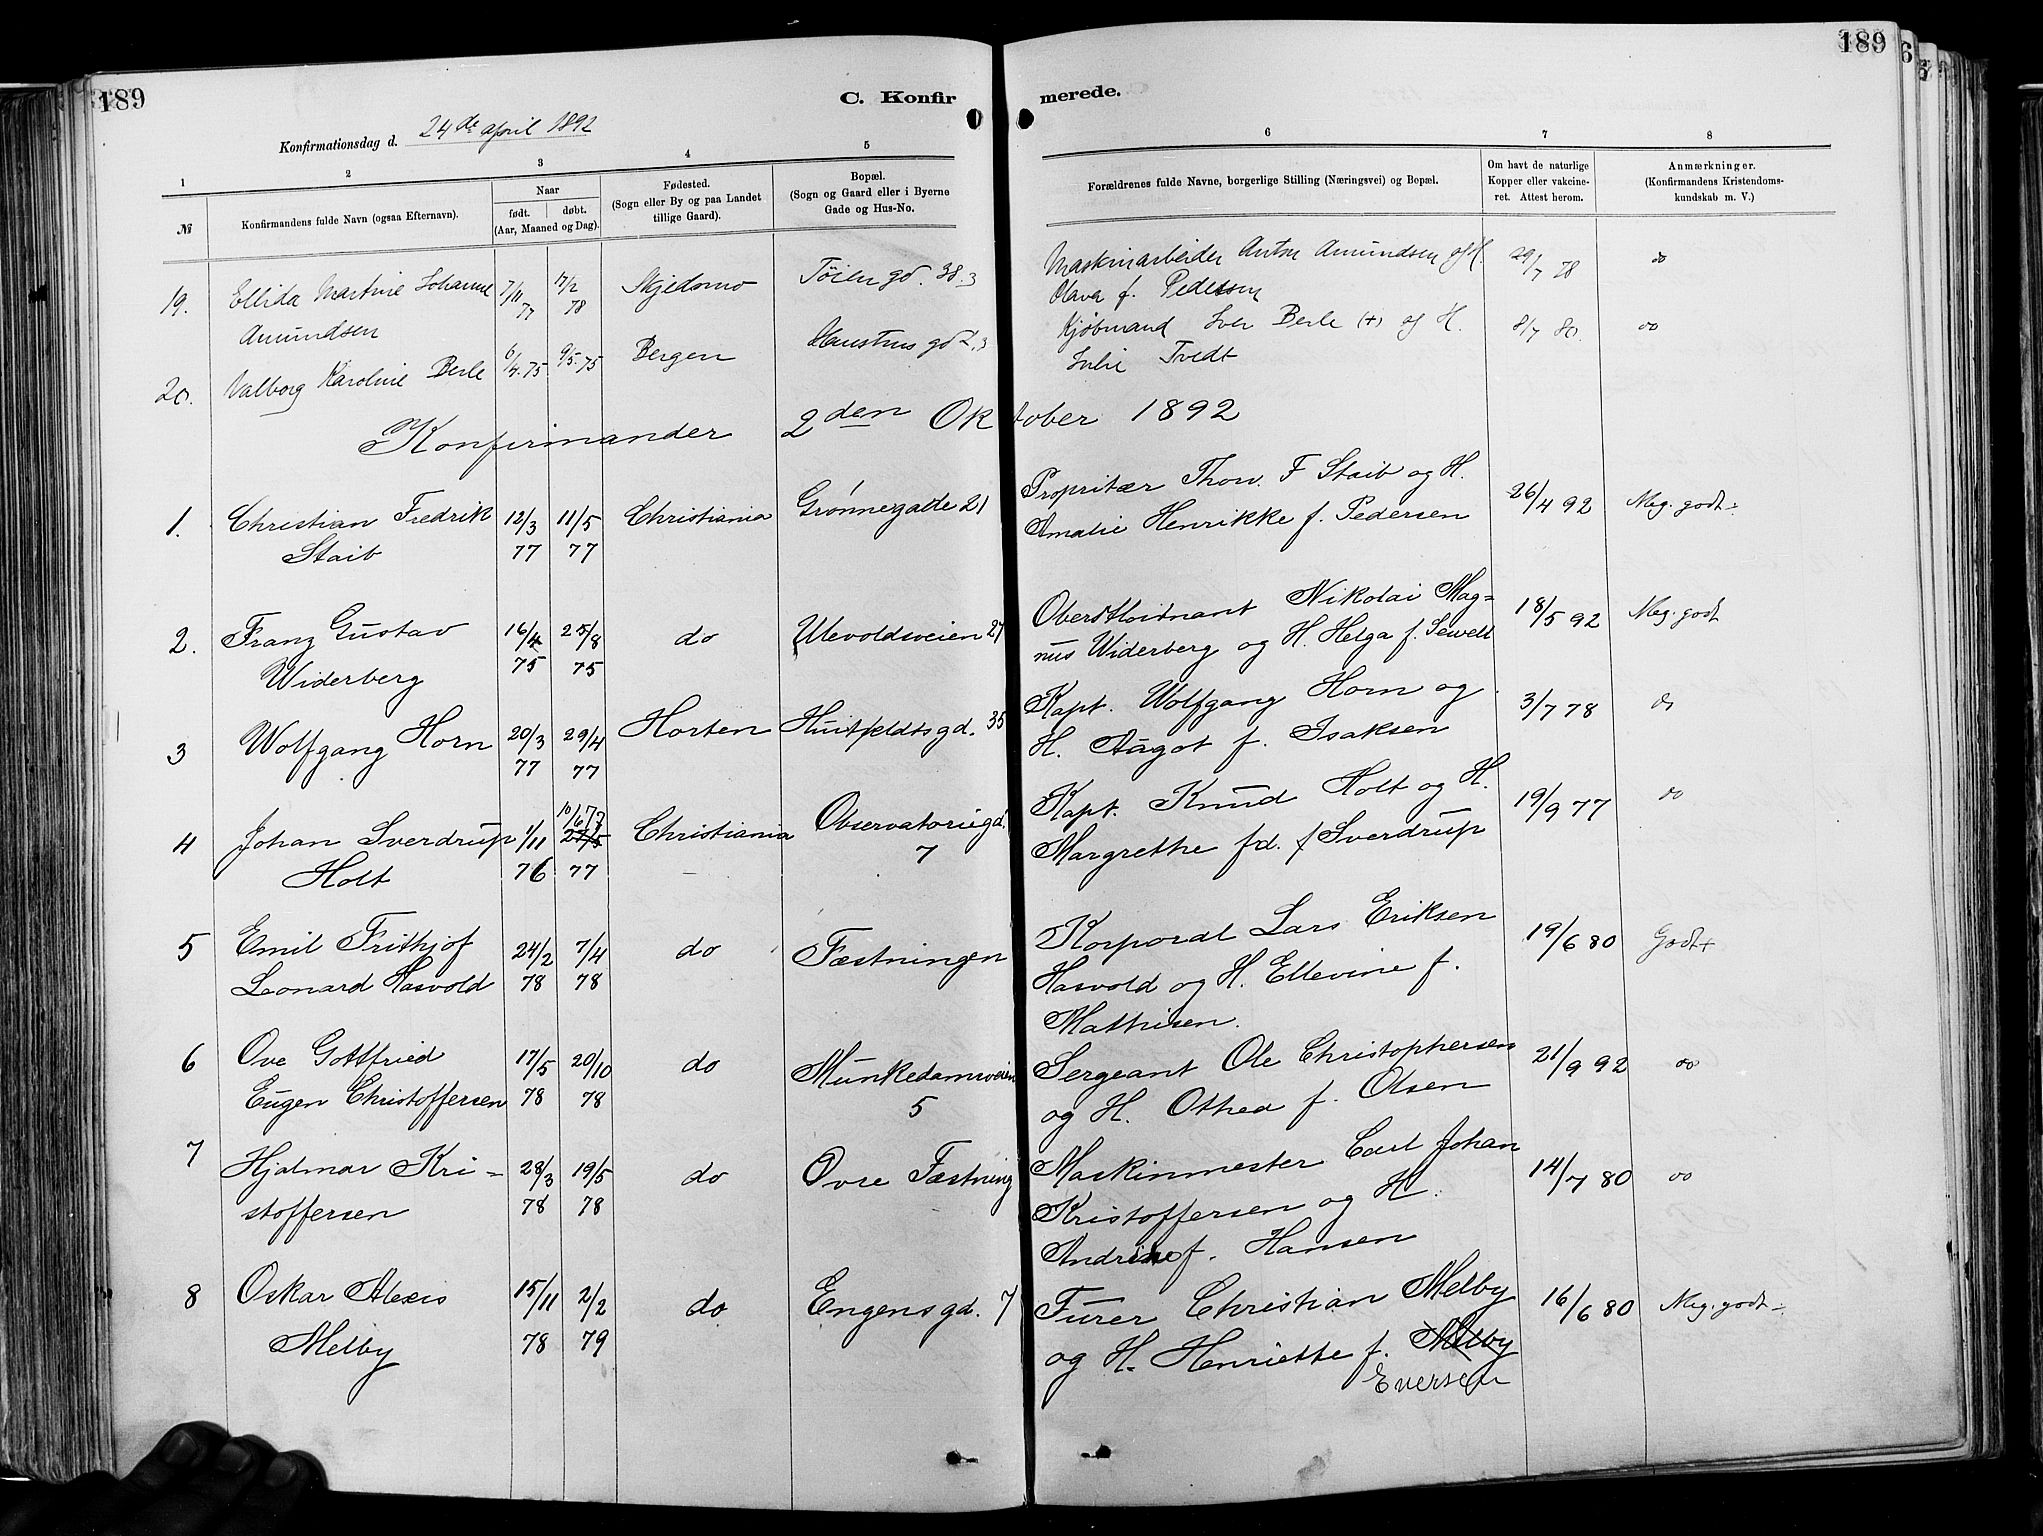 189
189
C. Konfirmerede.
Konfirmationsdag d. 24de april 1892
1 2 3 4 5 6 7 8
№
Konfirmandens fulde Navn (ogsaa Efternavn).
Naar
født. døbt.
(Aar, Maaned og Dag).
Fødested.
(Sogn eller By og paa Landet
tillige Gaard).
Bopæl.
(Sogn og Gaard eller i Byerne
Gade og Hus-No.
Forældrenes fulde Navne, borgerlige Stilling (Næringsvei) og Bopæl.
Om havt de naturlige
Kopper eller vakcine-
ret. Attest herom.
Anmærkninger.
(Konfirmandens Kristendoms-
kundskab m. V.)
19. Ellida Martine Johanne 7/11 77 17/2 78 Skjedsmo Tøiengd. 38.3 Maskinarbeider Anton Amundsen og H. 29/7 78 do
Amundsen Olava f. Pedersen
20. Valborg Karoline Berle 6/4.75 9/5.75 Bergen gd 2.3 Kjøbmand Iver Berle (+) og H. 8/7 80. do
Julie Tvedt
Konfirmander 2den Oktober 1892
1. Christian Fredrik 12/3 11/5 Christiania Grønnegade 21 Propritær Thorv. F Staib og H. 26/4 92 Meg. godt÷
Staib 77 77 Amalie Henrikke f. Pedersen
2. Franz Gustav 16/4 25/8 do Ulevoldsveien 27 Oberstløitnant Nikolai Mag- 18/5 92 Meg. godt
Widerberg 75 75 nus Widerberg og H. Helga f. Sewell
3 Wolfgang Horn 20/3 29/4 Horten Huitfeldtsgd. 35 Kapt. Wolfgang Horn og 3/7 78 do
77 77 H. Aagot f. Isaksen
4 Johan Sverdrup 1/11 10/6 77 27/5 Christiania Observatoriegd. Kapt. Knud Holt og H. 19/9 77 do
Holt 76 77 7 Margrethe fd. f Sverdrup
5 Emil Frithjof 24/2 7/4 do Fæstningen Korporal Lars Eriksen 19/6 80 Godt+
Leonard Hasvold 78 78 Hasvold og H. Ellevine f.
Mathisen.
6 Ove Gottfried 17/5 20/10 do Munkedamsveien Sergeant Ole Christophersen 21/9 92 do
Eugen Christoffersen 78 78 5 og H. Othea f. Olsen
7 Hjalmar Kri- 28/3 19/5 do Ovre Fæstning Maskinmester Carl Johan 14/7 80 do
stoffersen 78 78 Kristoffersen og H.
Andrine f. Hansen
8 Oskar Alexis 15/11 2/2 do Engensgd. 7 Furer Christian Melby 16/6 80 Meg. godt÷
Melby 78 79 og H. Henriette f. Melby
Eversen